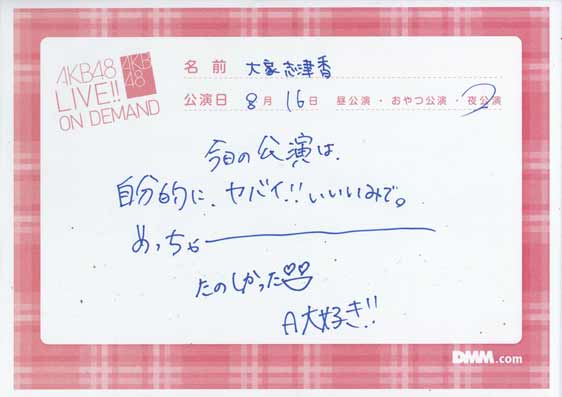 AKB48
LIVE!!
ON DEMAND
AKB
48
名前 大家志津香
公演日 8月16日 昼公演・おやつ公演・夜公演
今日の公演は、
自分的に、ヤバイ!!いいいみで。
めっちゃ―――――
たのしかった
A大好き!!
DMM.com